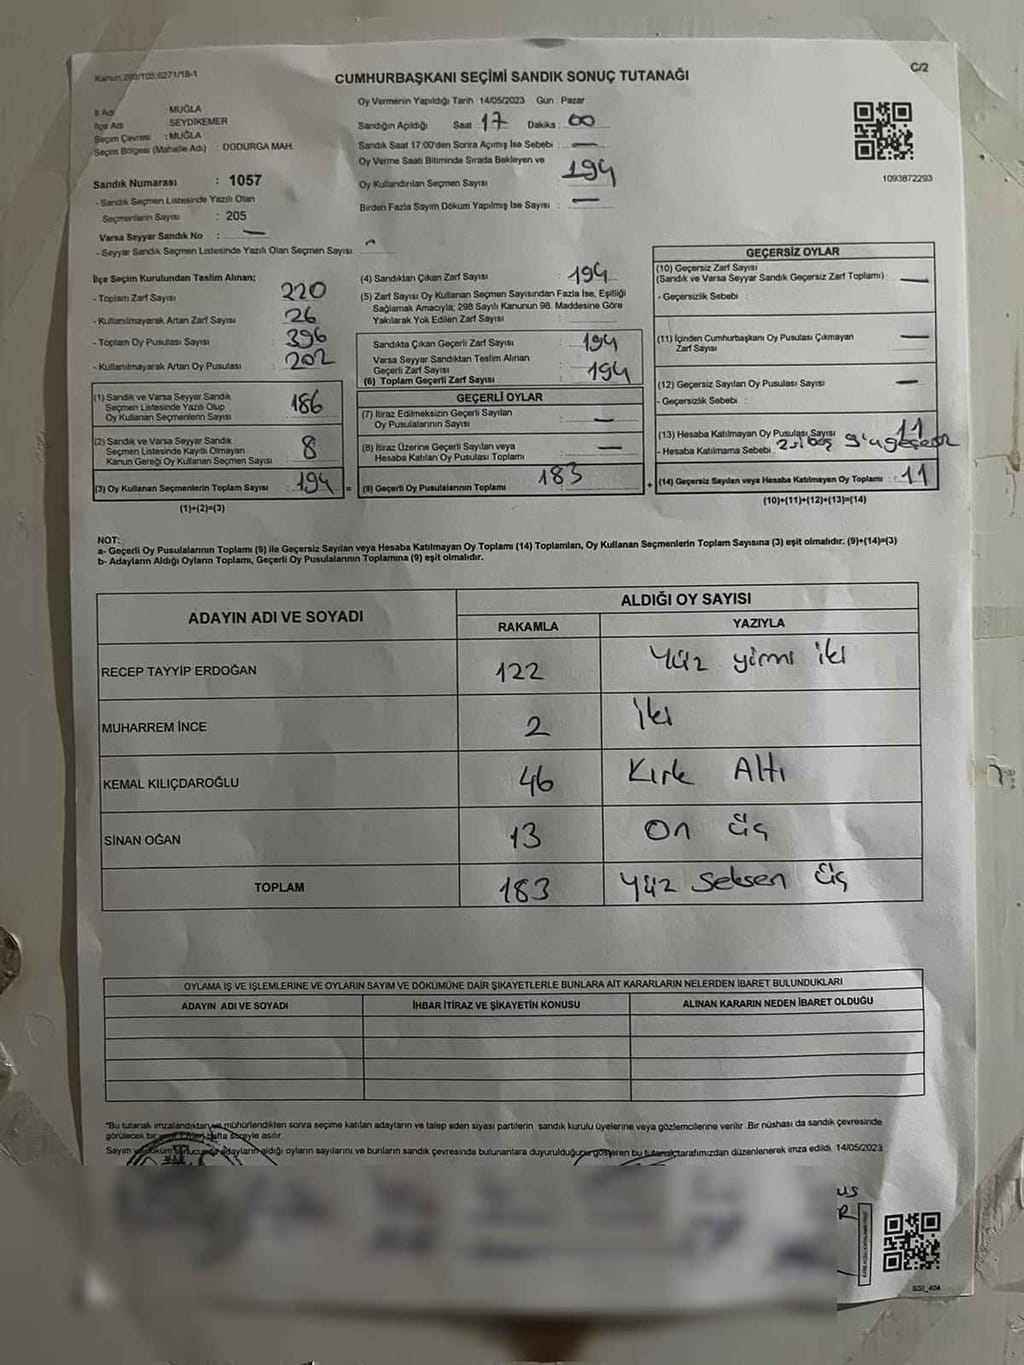 Kanun:298/105:6271/18-1
CUMHURBAŞKANI SEÇİMİ SANDIK SONUÇ TUTANAĞI
C/2
İl Adı : MUĞLA
İlçe Adı : SEYDİKEMER
Seçim Çevresi : MUĞLA
Seçim Bölgesi (Mahalle Adı) : DODURGA MAH.
Sandık Numarası : 1057
- Sandık Seçmen Listesinde Yazılı Olan
Seçmenlerin Sayısı : 205
Varsa Seyyar Sandık No : —
- Seyyar Sandık Seçmen Listesinde Yazılı Olan Seçmen Sayısı
Oy Vermenin Yapıldığı Tarih : 14/05/2023 Gün : Pazar
Sandığın Açıldığı Saat : 17 Dakika : 00
Sandık Saat 17:00'den Sonra Açımış İse Sebebi : —
Oy Verme Saati Bitiminde Sırada Bekleyen ve
Oy Kullandırılan Seçmen Sayısı : 194
Birden Fazla Sayım Döküm Yapılmış İse Sayısı : —
1093872293
İlçe Seçim Kurulundan Teslim Alınan;
- Toplam Zarf Sayısı : 220
- Kullanılmayarak Artan Zarf Sayısı : 26
- Toplam Oy Pusulası Sayısı : 396
- Kullanılmayarak Artan Oy Pusulası : 202
(1) Sandık ve Varsa Seyyar Sandık
Seçmen Listesinde Yazılı Olup
Oy Kullanan Seçmenlerin Sayısı : 186
(2) Sandık ve Varsa Seyyar Sandık
Seçmen Listesinde Kayıtlı Olmayan
Kanun Gereği Oy Kullanan Seçmen Sayısı : 8
(3) Oy Kullanan Seçmenlerin Toplam Sayısı : 194 =
(1)+(2)=(3)
(4) Sandıktan Çıkan Zarf Sayısı : 194
(5) Zarf Sayısı Oy Kullanan Seçmen Sayısından Fazla İse, Eşitliği
Sağlamak Amacıyla; 298 Sayılı Kanunun 98. Maddesine Göre
Yakılarak Yok Edilen Zarf Sayısı
Sandıkta Çıkan Geçerli Zarf Sayısı : 194
Varsa Seyyar Sandıktan Teslim Alınan
Geçerli Zarf Sayısı :
(6) Toplam Geçerli Zarf Sayısı : 194
GEÇERLİ OYLAR
(7) İtiraz Edilmeksizin Geçerli Sayılan
Oy Pusulalarının Sayısı : —
(8) İtiraz Üzerine Geçerli Sayılan veya
Hesaba Katılan Oy Pusulası Toplamı : —
(9) Geçerli Oy Pusulalarının Toplamı : 183 +
GEÇERSİZ OYLAR
(10) Geçersiz Zarf Sayısı
(Sandık ve Varsa Seyyar Sandık Geçersiz Zarf Toplamı) : —
- Geçersizlik Sebebi :
(11) İçinden Cumhurbaşkanı Oy Pusulası Çıkmayan
Zarf Sayısı : —
(12) Geçersiz Sayılan Oy Pusulası Sayısı : —
- Geçersizlik Sebebi :
(13) Hesaba Katılmayan Oy Pusulası Sayısı : 11
- Hesaba Katılmama Sebebi :
(14) Geçersiz Sayılan veya Hesaba Katılmayan Oy Toplamı : 11
(10)+(11)+(12)+(13)=(14)
NOT:
a- Geçerli Oy Pusulalarının Toplamı (9) ile Geçersiz Sayılan veya Hesaba Katılmayan Oy Toplamı (14) Toplamları, Oy Kullanan Seçmenlerin Toplam Sayısına (3) eşit olmalıdır. (9)+(14)=(3)
b- Adayların Aldığı Oyların Toplamı, Geçerli Oy Pusulalarının Toplamına (9) eşit olmalıdır.
ADAYIN ADI VE SOYADI ALDIĞI OY SAYISI
RAKAMLA YAZIYLA
RECEP TAYYİP ERDOĞAN 122 Yüz yirmi iki
MUHARREM İNCE 2 İki
KEMAL KILIÇDAROĞLU 46 Kırk Altı
SİNAN OĞAN 13 On üç
TOPLAM 183 Yüz Seksen üç
OYLAMA İŞ VE İŞLEMLERİNE VE OYLARIN SAYIM VE DÖKÜMÜNE DAİR ŞİKAYETLERLE BUNLARA AİT KARARLARIN NELERDEN İBARET BULUNDUKLARI
ADAYIN ADI VE SOYADI İHBAR İTİRAZ VE ŞİKAYETİN KONUSU ALINAN KARARIN NEDEN İBARET OLDUĞU
"Bu tutanak imzalandıktan ve mühürlendikten sonra seçime katılan adayların ve talep eden siyasi partilerin sandık kurulu üyelerine veya gözlemcilerine verilir .Bir nüshası da sandık çevresinde
görülecek bir yere 1 (bir) hafta süreyle asılır.
Sayım ve döküm sonucunda adayların aldığı oyların sayılarını ve bunların sandık çevresinde bulunanlara duyurulduğunu gösteren bu tutanak tarafımızdan düzenlenerek imza edildi. 14/05/2023
US
R
SSI_404